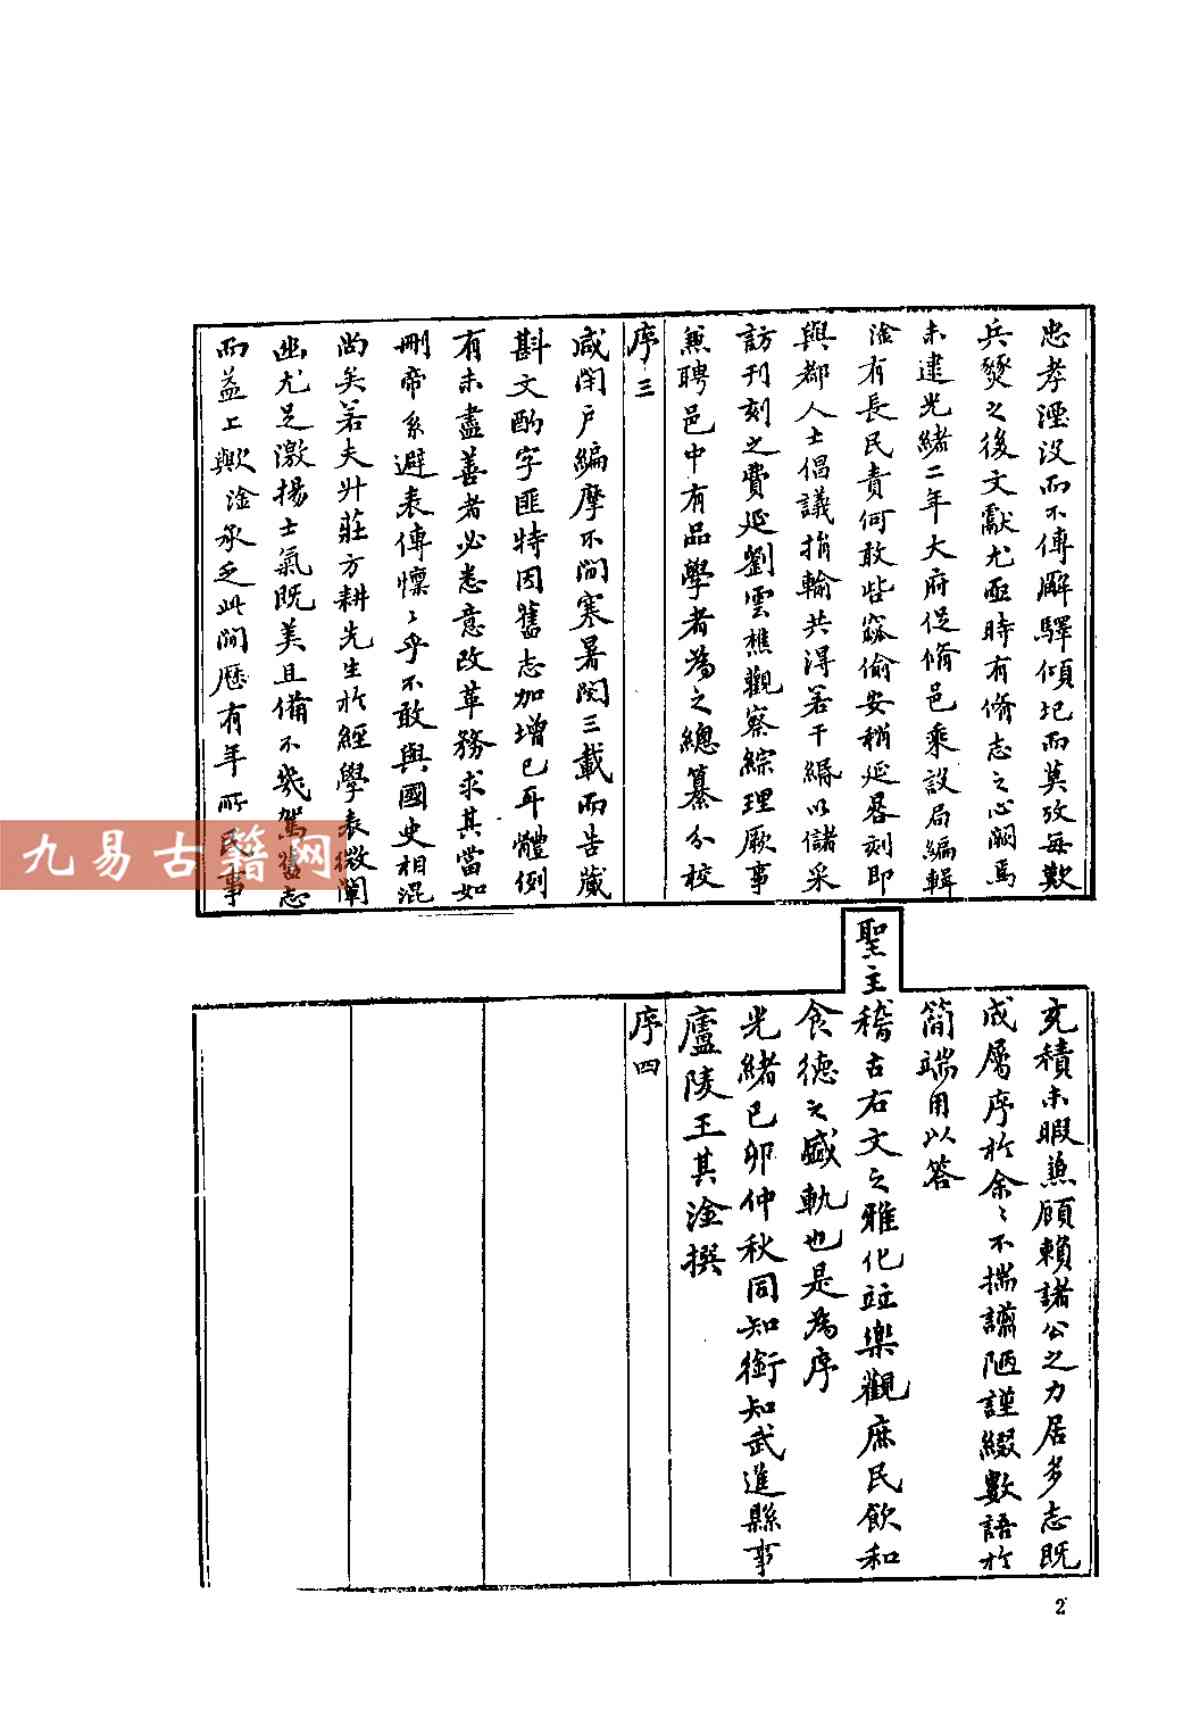 忠孝湮沒而不傳廨驛傾圮而莫攷每歎
兵燹之後文獻尤亟時有脩志之心闕焉
未逮光緒二年大府促脩邑乘設局編輯
淦有長民責何敢呰窳偷安稍延晷刻即
與都人士倡議捐輸共得若干緡以儲采
訪刊刻之費延劉雲樵觀察綜理厥事
兼聘邑中有品學者為之總纂分校
序三
咸閉戶編摩不間寒暑閱三載而告蕆
斟文酌字匪特因舊志加增已耳體例
有未盡善者必悉意改革務求其當如
刪帝系避表傳懍〻乎不敢與國史相混
尚矣若夫廾莊方耕先生於經學表微闡
幽尤足激揚士氣既美且備不幾駕舊志
而益上歟淦承乏此間歷有年所民事
充積未暇兼顧賴諸公之力居多志既
成屬序於余〻不揣譾陋謹綴數語於
簡端用以答
聖主稽古右文之雅化竝樂觀庶民飲和
食德之盛軌也是為序
光緒已卯仲秋同知銜知武進縣事
廬陵王其淦撰
序四
九易古籍网
2